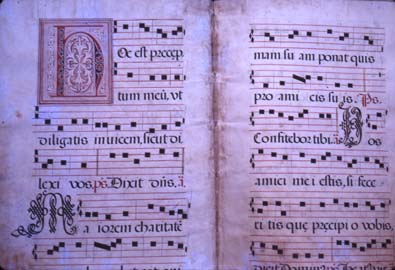 Hoc est præcep
tum meū, vt
diligatis inuicem, sicut di
lexi vos. ps. Dixit dn̄s. a.
Maiorem charitatē
mam suam ponat quis
pro amicis suis. Ps.
Confitebor tibi. a. Vos
amici mei estis, si fece
ritis quę pręcipio vobis.